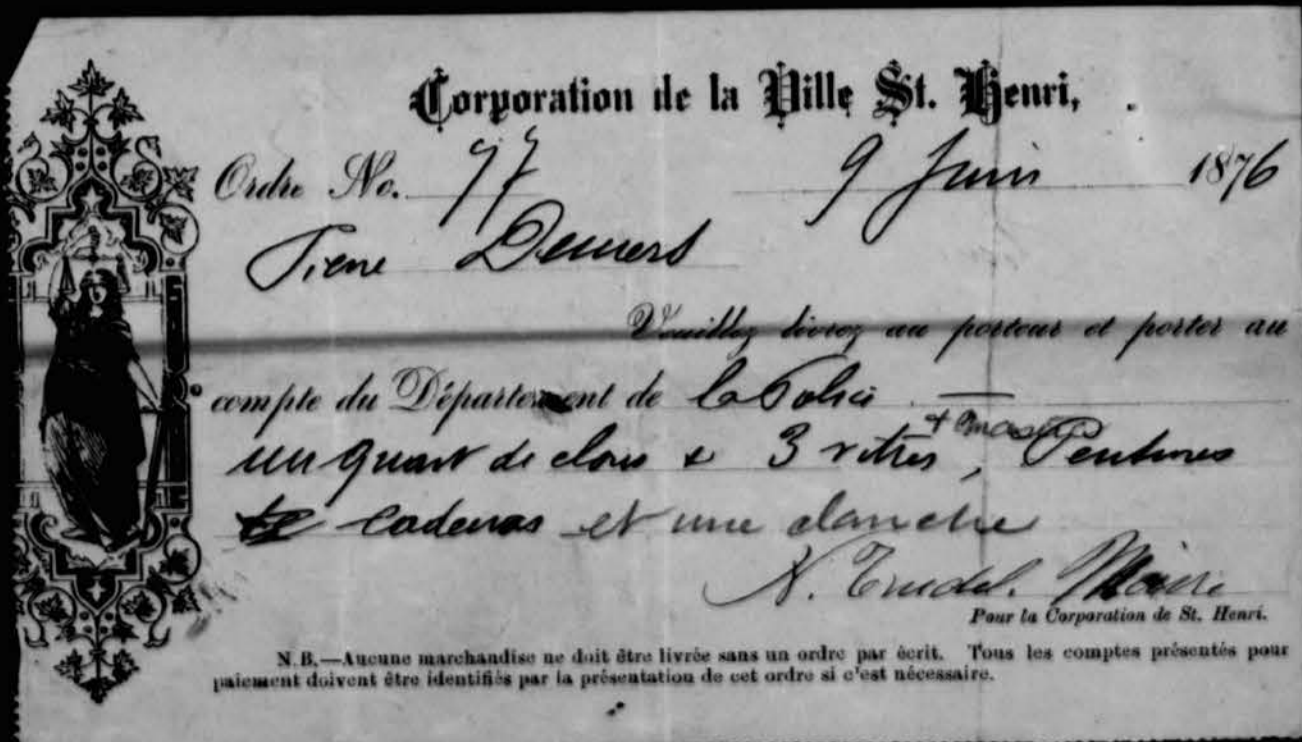 Corporation de la Ville St. Henri,
Ordre No. 77 9 Juin 1876
Pierre Demers
Veuillez livrez au porteur et porter au
compte du Département de la Police
un quart de clous & 3 vitres, + mastic Pentures
cadenas et une
N. Trudel. Maire
Pour la Corporation de St. Henri.
N.B.—Aucune marchandise ne doit être livrée sans un ordre par écrit. Tous les comptes présentés pour
paiement doivent être identifiés par la présentation de cet ordre si c'est nécessaire.